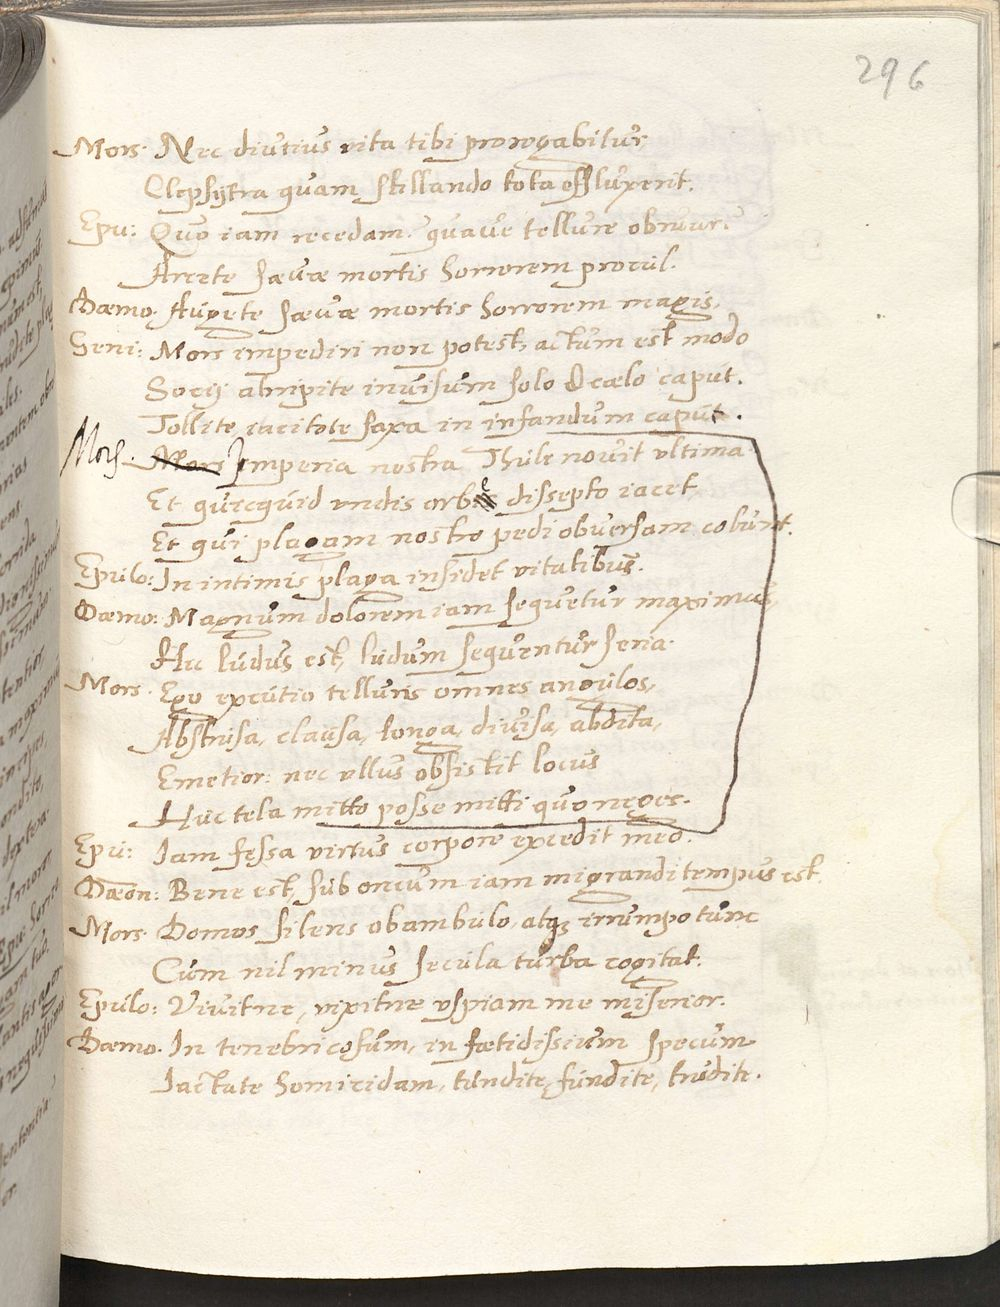 296
Mors. Nec diutius vita tibi prorogabitur
Clepsytra quam stillando tota effluxerit.
Epu: Quo iam recedam. quave tellure obruar.
Arcete saevae mortis horrorem procul.
Daemo. Augete saevae mortis horrorem magis,
Geni: Mors impediri non potest, actum est modo
Socij abripite invisum solo & caelo caput.
Tollite iacitote saxa in infandum caput.
Mors. Mors Imperia nostra Thule novit ultima
Et quicquid undis orbe dissepto iacet
Et qui plagam nostro pedi obversam colunt.
Epulo: In intimis plaga insidet vitalibus.
Daemo: Magnum dolorem iam sequetur maximus,
Hic ludus est, ludum sequentur seria.
Mors. Ego excutio telluris omnes angulos,
Abstrusa, clausa, longa, divisa, abdita,
Emetior: nec ullus obsistit locus
Huc tela mitto posse mitti quo neges.
Epu: Iam fessa virtus corpore excedit meo.
Daeon: Bene est, sub orcum iam migrandi tempus est,
Mors. Domos silens obambulo, atq; irrumpo tunc
Cum nil minus secula turba cogitat.
Epulo: Vivitne, vixitne uspiam me miserior.
Daemo. In tenebricosum, in foetidissium specum
Iactate homicidam, tundite, fundite, trudite.